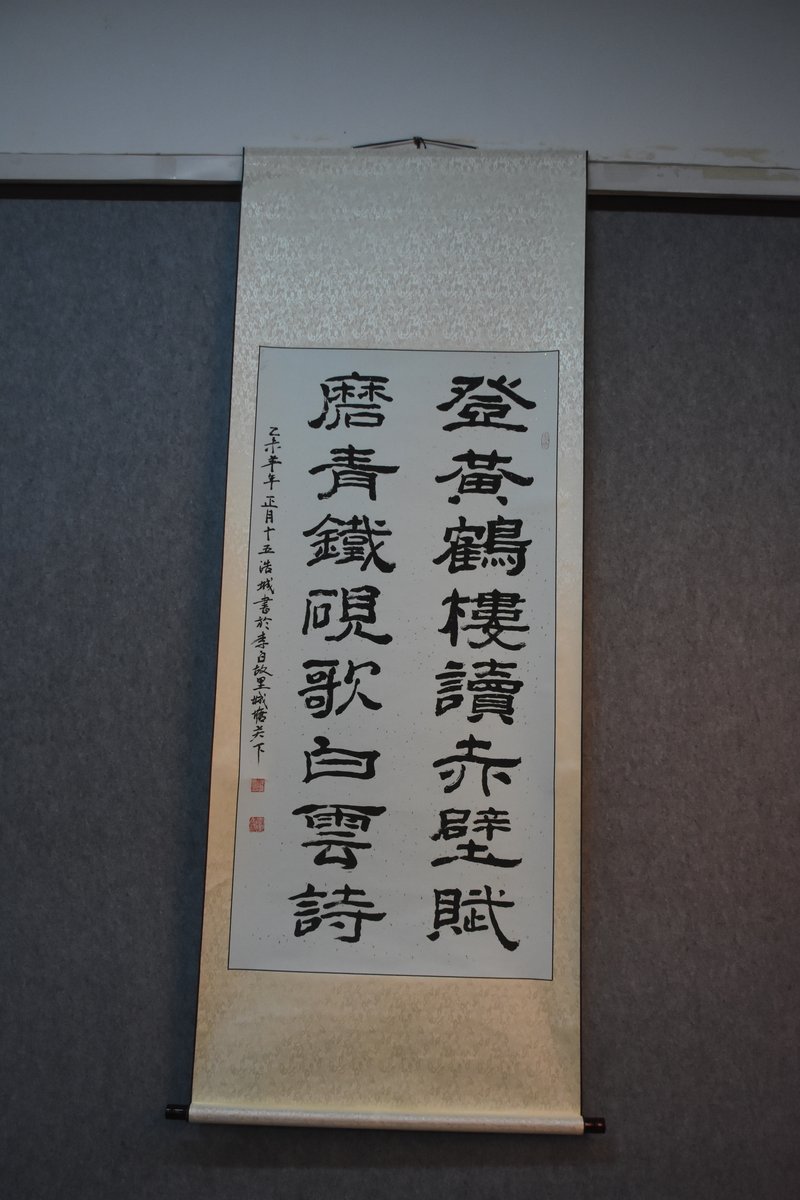 登黃鶴樓讀赤壁賦
磨青鐵硯歌白雲詩
乙未羊年正月十五浩城書於李白故里城墻关下